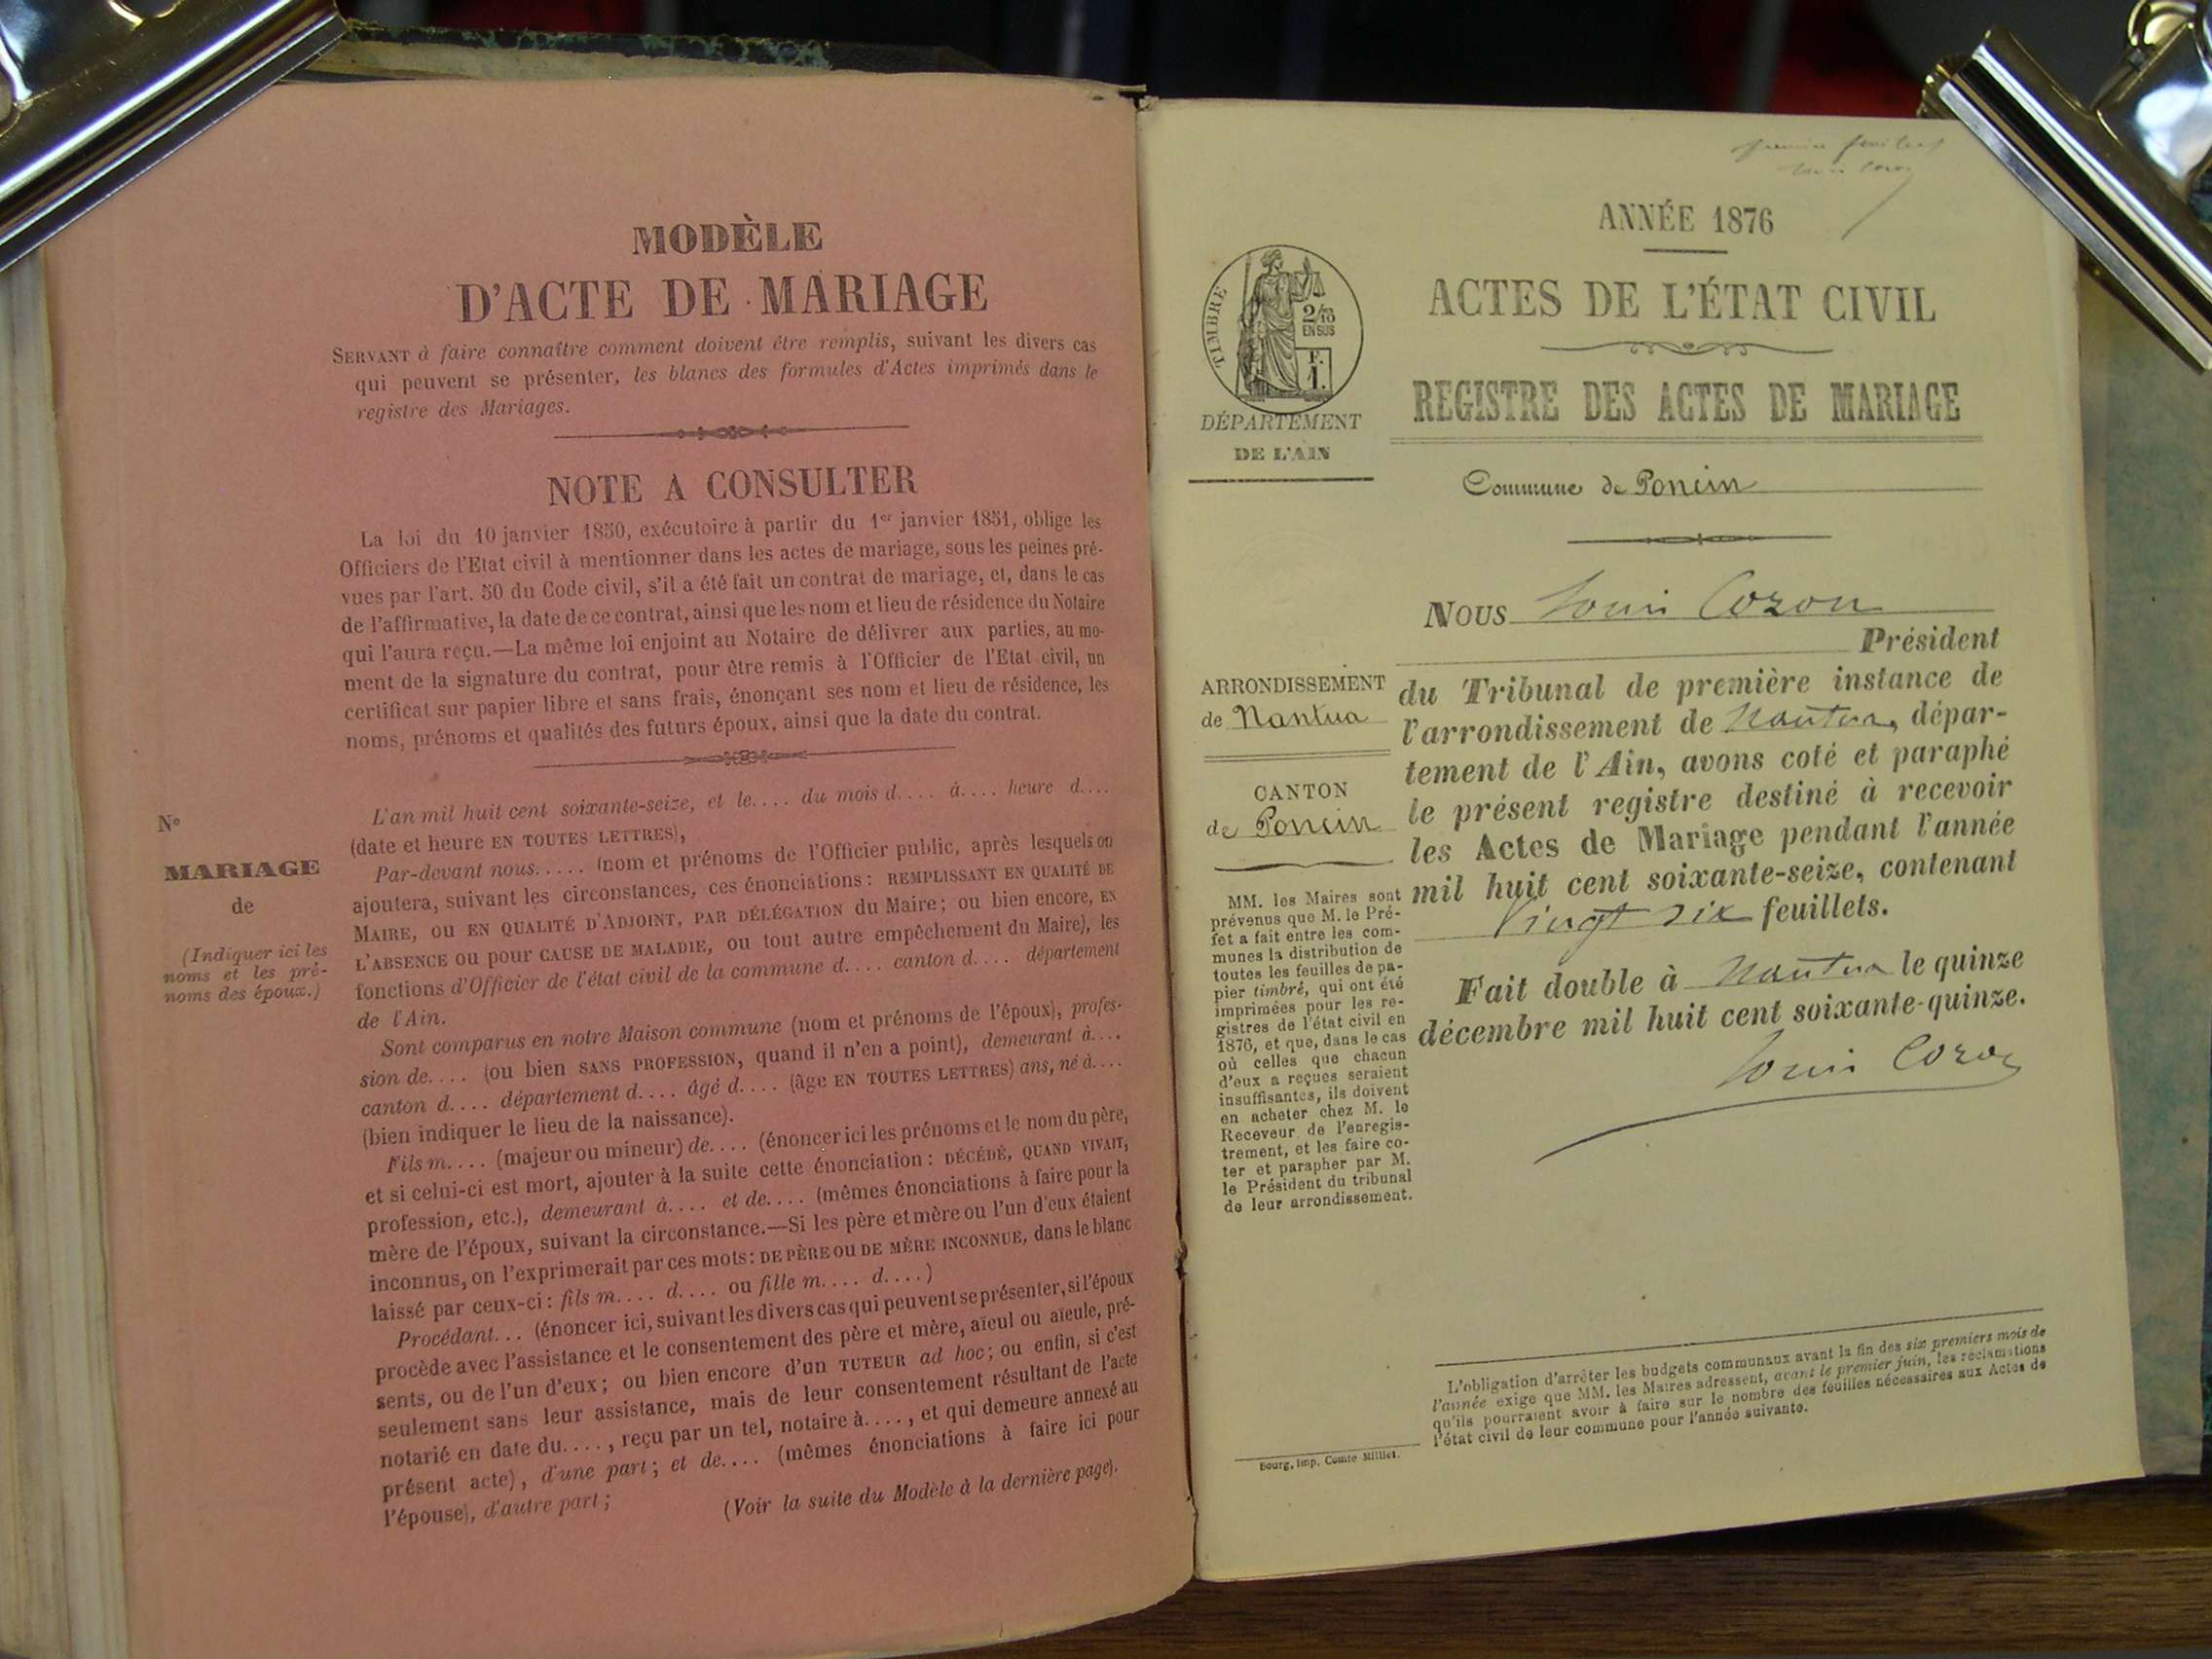 MODÈLE
D'ACTE DE MARIAGE
SERVANT à faire connaître comment doivent être remplis, suivant les divers cas
qui peuvent se présenter, les blancs des formules d'Actes imprimés dans le
registre des Mariages.
NOTE A CONSULTER
La loi du 10 janvier 1850, exécutoire à partir du 1er janvier 1851, oblige les
Officiers de l'Etat civil à mentionner dans les actes de mariage, sous les peines pré-
vues par l'art. 50 du Code civil, s'il a été fait un contrat de mariage, et, dans le cas
de l'affirmative, la date de ce contrat, ainsi que les nom et lieu de résidence du Notaire
qui l'aura reçu.—La même loi enjoint au Notaire de délivrer aux parties, au mo-
ment de la signature du contrat, pour être remis à l'Officier de l'Etat civil, un
certificat sur papier libre et sans frais, énonçant ses nom et lieu de résidence, les
noms, prénoms et qualités des futurs époux, ainsi que la date du contrat.
N°
MARIAGE
de
(Indiquer ici les
noms et les pré-
noms des époux.)
L'an mil huit cent soixante-seize, et le.... du mois d.... à.... heure d....
(date et heure EN TOUTES LETTRES),
Par-devant nous..... (nom et prénoms de l'Officier public, après lesquels on
ajoutera, suivant les circonstances, ces énonciations : REMPLISSANT EN QUALITÉ DE
MAIRE, OU EN QUALITÉ D'ADJOINT, PAR DÉLÉGATION du Maire; ou bien encore, EN
L'ABSENCE ou pour CAUSE DE MALADIE, ou tout autre empêchement du Maire), les
fonctions d'Officier de l'état civil de la commune d.... canton d.... département
de l'Ain.
Sont comparus en notre Maison commune (nom et prénoms de l'époux), profes-
sion de.... (ou bien SANS PROFESSION, quand il n'en a point), demeurant à....
canton d.... département d.... âgé d.... (âge EN TOUTES LETTRES) ans, né à....
(bien indiquer le lieu de la naissance).
Fils m.... (majeur ou mineur) de.... (énoncer ici les prénoms et le nom du père,
et si celui-ci est mort, ajouter à la suite cette énonciation : DÉCÉDÉ, QUAND VIVAIT,
profession, etc.), demeurant à.... et de.... (mêmes énonciations à faire pour la
mère de l'époux, suivant la circonstance.—Si les père et mère ou l'un d'eux étaient
inconnus, on l'exprimerait par ces mots : DE PÈRE OU DE MÈRE INCONNUE, dans le blanc
laissé par ceux-ci : fils m.... d.... ou fille m.... d....)
Procédant... (énoncer ici, suivant les divers cas qui peuvent se présenter, si l'époux
procède avec l'assistance et le consentement des père et mère, aïeul ou aïeule, pré-
sents, ou de l'un d'eux; ou bien encore d'un TUTEUR ad hoc; ou enfin, si c'est
seulement sans leur assistance, mais de leur consentement résultant de l'acte
notarié en date du...., reçu par un tel, notaire à...., et qui demeure annexé au
présent acte), d'une part; et de.... (mêmes énonciations à faire ici pour
l'épouse), d'autre part;
(Voir la suite du Modèle à la dernière page).
premier feuillet
Louis Cozon
ANNÉE 1876
TIMBRE
2/10
EN SUS
F.
1.
ACTES DE L'ÉTAT CIVIL
REGISTRE DES ACTES DE MARIAGE
DÉPARTEMENT
DE L'AIN
Commune de Poncin
NOUS Louis Cozon
Président
du Tribunal de première instance de
l'arrondissement de Nantua, dépar-
tement de l'Ain, avons coté et paraphé
le présent registre destiné à recevoir
les Actes de Mariage pendant l'année
mil huit cent soixante-seize, contenant
Vingt six feuillets.
Fait double à Nantua le quinze
décembre mil huit cent soixante-quinze.
Louis Cozon
ARRONDISSEMENT
de Nantua
CANTON
de Poncin
MM. les Maires sont
prévenus que M. le Pré-
fet a fait entre les com-
munes la distribution de
toutes les feuilles de pa-
pier timbré, qui ont été
imprimées pour les re-
gistres de l'état civil en
1876, et que, dans le cas
où celles que chacun
d'eux a reçues seraient
insuffisantes, ils doivent
en acheter chez M. le
Receveur de l'enregis-
trement, et les faire co-
ter et parapher par M.
le Président du tribunal
de leur arrondissement.
L'obligation d'arrêter les budgets communaux avant la fin des six premiers mois de
l'année exige que MM. les Maires adressent, avant le premier juin, les réclamations
qu'ils pourraient avoir à faire sur le nombre des feuilles nécessaires aux Actes de
l'état civil de leur commune pour l'année suivante.
Bourg, Imp. Comte Milliet.